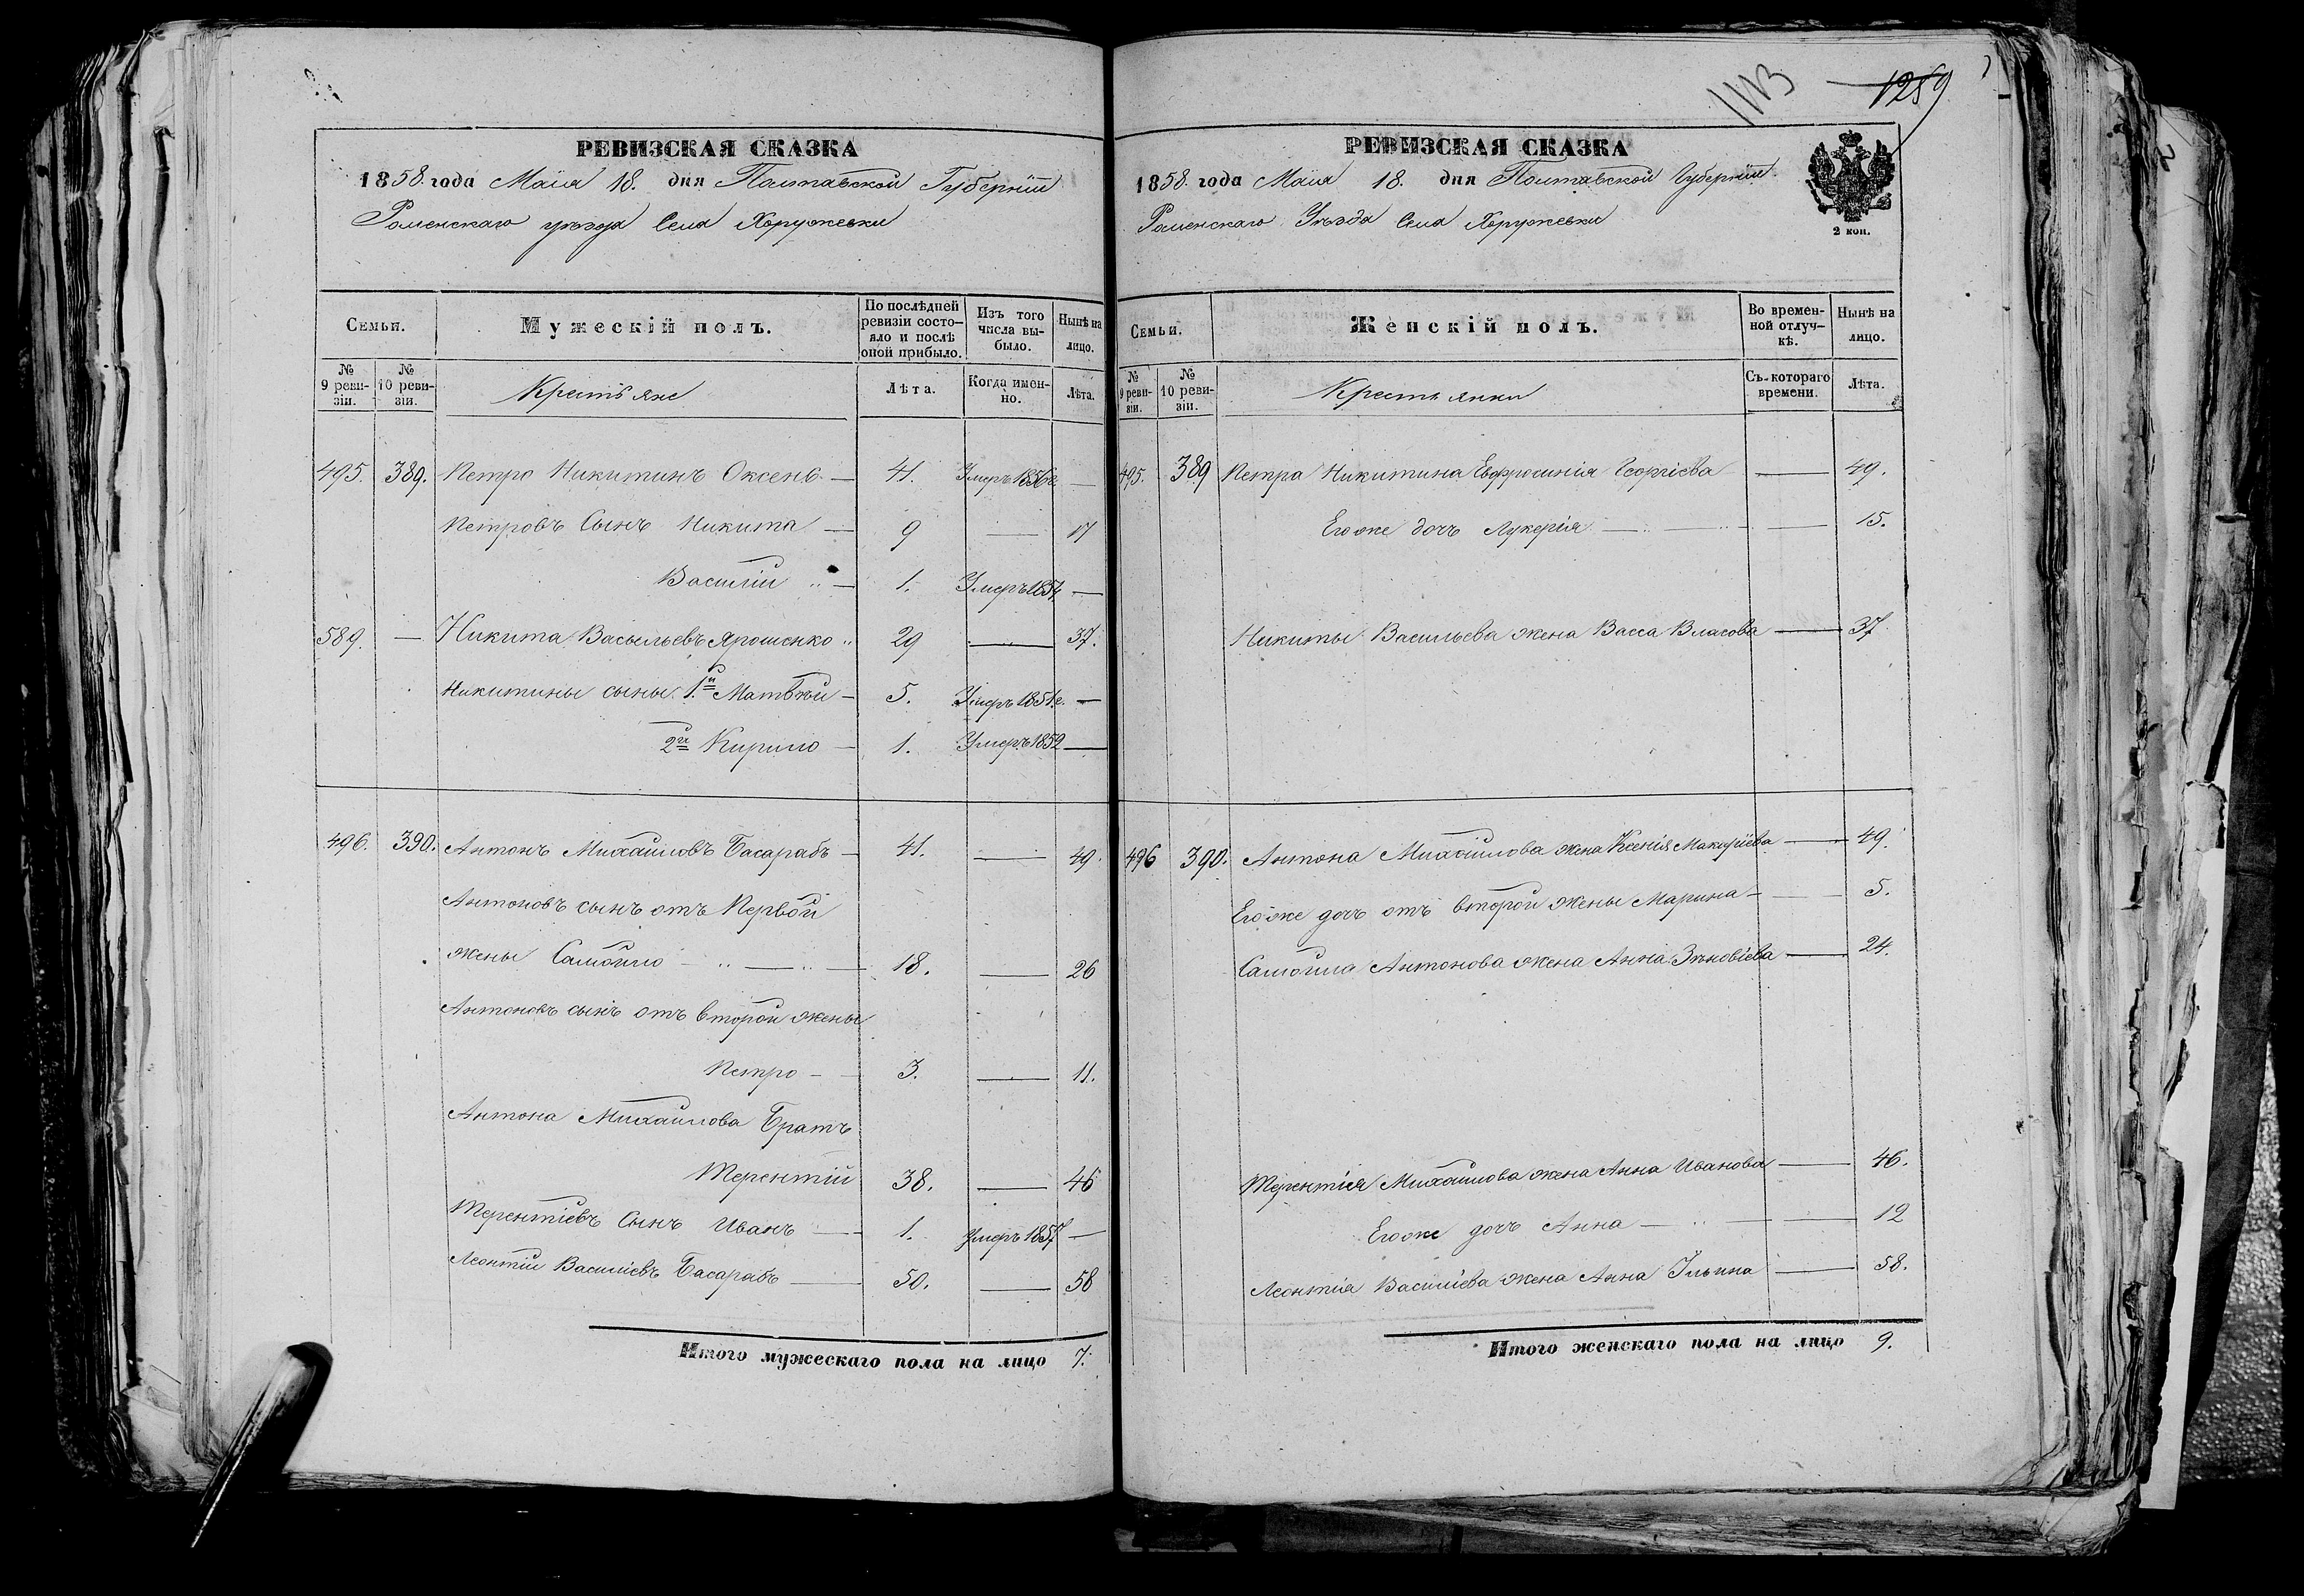 1113
1259
РЕВИЗСКАЯ СКАЗКА
1858. года Маія 18. дня Полтавской Губерніи
Роменскаго уѣзда Села Хоружевки
Семьи.
Мужескій полъ.
По послѣдней ревизіи состояло и послѣ оной прибыло.
Изъ того числа выбыло.
Нынѣ на лицо.
№ 9 ревизіи.
№ 10 ревизіи.
Крестьяне
Лѣта.
Когда именно.
Лѣта.
495. 389. Петро Никитинъ Оксенъ — 41. Умеръ 1856г. —
Петровъ Сынъ Никита — 9 — 17
Василій „ — 1. Умеръ 1854 —
589. — Никита Васыльевъ Ярошенко „ 29 — 37.
Никитины сыны: 1.й Матвѣй — 5. Умеръ 1851г. —
2й Кирило — 1. Умеръ 1852 —
496. 390. Антонъ Михайловъ Басарабъ — 41. — 49.
Антоновъ сынъ отъ Первой
жены Самойло — „ — „ — 18. — 26
Антоновъ сынъ отъ второй жены
Петро — 3. — 11.
Антона Михайлова Братъ
Терентій 38. — 46
Терентіевъ Сынъ Иванъ — 1. Умеръ 1857 —
Леонтій Василіевъ Басарабъ — 50. — 58
Итого мужескаго пола на лицо 7.
РЕВИЗСКАЯ СКАЗКА
1858. года Маія 18. дня Полтавской Губерніи
Роменскаго Уѣзда Села Хоружевки
2 коп.
Семьи.
Женскій полъ.
Во временной отлучкѣ.
Нынѣ на лицо.
№ 9 ревизіи.
№ 10 ревизіи.
Крестьянки
Съ котораго времени.
Лѣта.
495. 389 Петра Никитина Евфросинія Георгіева — 49.
Его же дочь Лукерія — 15.
Никиты Васильева жена Васса Власова — 37
496 390. Антона Михайлова жена Ксенія Макаріева — 49.
Его же дочь отъ второй жены Марина — 5.
Самойла Антонова жена Анна Зѣновіева — 24.
Терентія Михайлова жена Анна Иванова — 46.
Его же дочь Анна — „ — 12
Леонтія Василіева жена Анна Ильина — 58.
Итого женскаго пола на лицо 9.